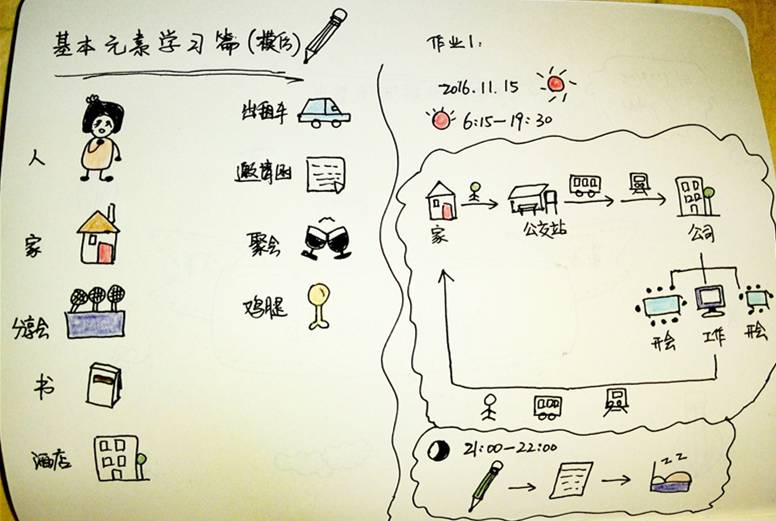 基本元素学习篇(模仿)
人
家
分享会
书
酒店
出租车
邀请函
聚会
鸡腿
作业1:
2016.11.15
6:15-19:30
家
公交站
公司
开会
工作
开会
21:00-22:00
zz